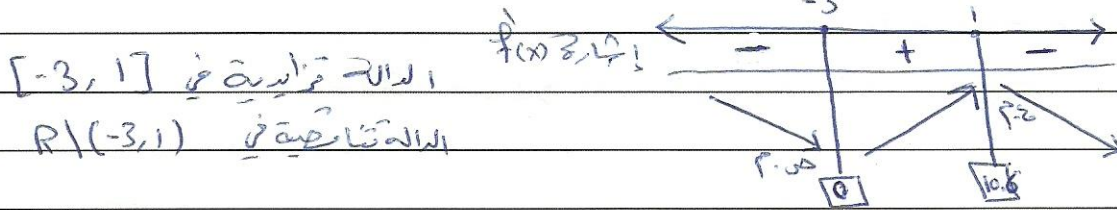 -3 1
إشارة f'(x) - + -
الدالة تزايدية في [-3, 1]
الدالة تناقصية في R\(-3,1)
ص.م ع.م
0 10.6